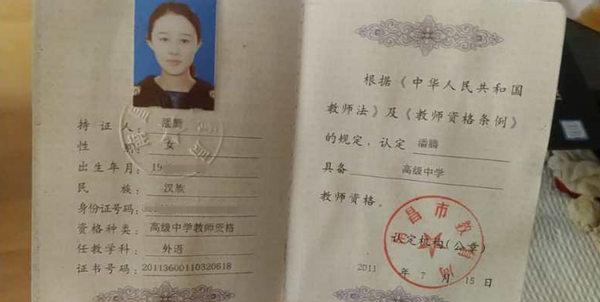 持证人：潘鹏
性别：女
出生年月：19
民族：汉族
身份证号码：
资格种类：高级中学教师资格
任教学科：外语
证书号码：20113600110320618
根据《中华人民共和国
教师法》及《教师资格条例》
的规定，认定 潘鹏
具备 高级中学
教师资格。
昌市教育局
认定机构(公章)
2011 年 7 月 15日